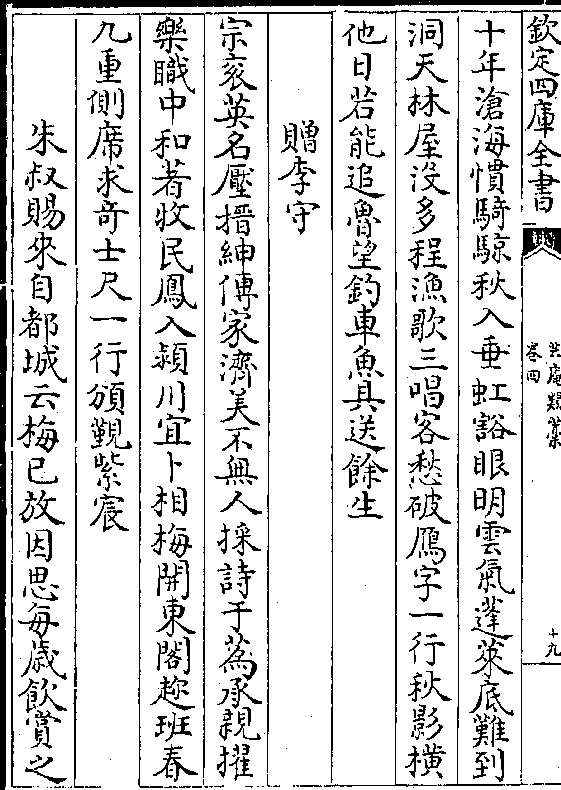 欽定四庫全書
卷四
十九
十年滄海慣騎鯨秋入垂虹豁眼明雲氣蓬萊底難到
洞天林屋没多程漁歌三唱客愁破鴈字一行秋影横
他日若能追魯望釣車魚具送餘生
贈李守
宗衮英名壓搢紳傳家濟美不無人採詩于蔿承親擢
樂職中和著牧民鳳入潁川宜卜相梅開東閣趂班春
九重側席求竒士尺一行頒覲紫宸
朱叔賜來自都城云梅已放因思每歳飲賞之